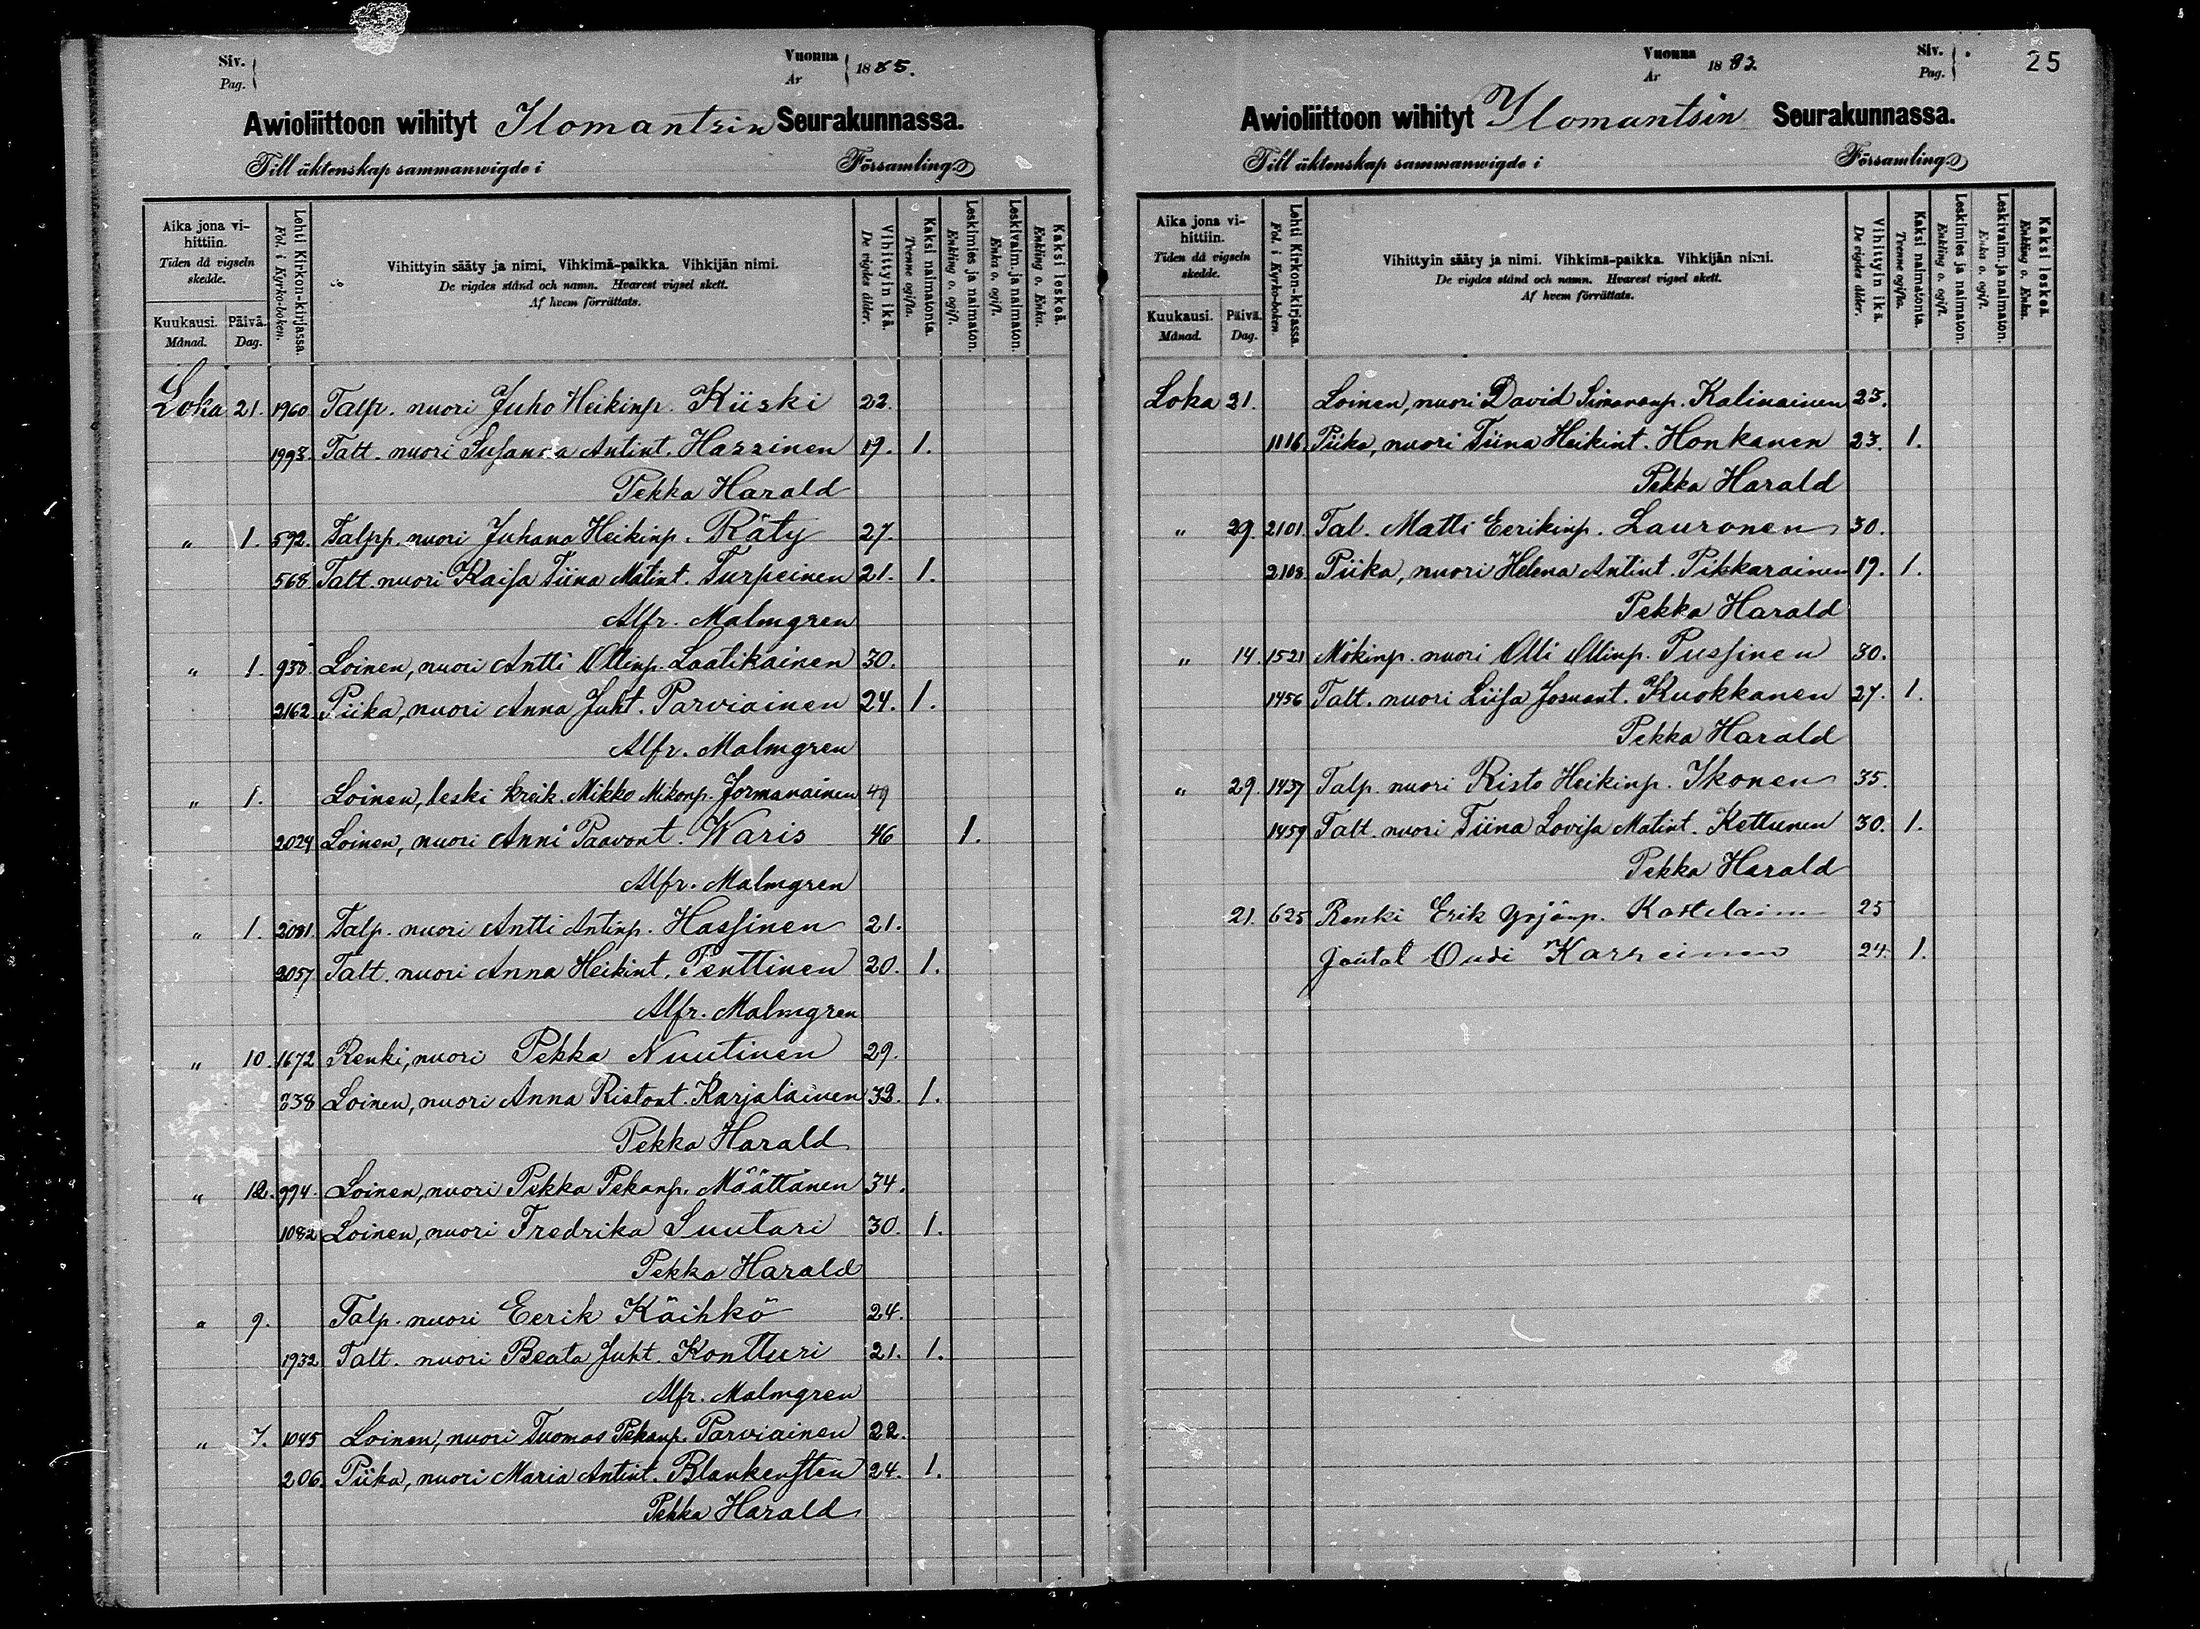 Siv.
Pag.
Vuonna
År
1885.
Awioliittoon wihityt Ilomantsin Seurakunnassa.
Till äktenskap sammanwigde i Församling
Aika jona vihittiin.
Tiden då vigseln skedde.
Kuukausi. Månad.
Päivä. Dag.
Lehti Kirkon-kirjassa. Fol. i Kyrko-boken.
Vihittyin sääty ja nimi. Vihkimä-paikka. Vihkijän nimi.
De vigdes stånd och namn. Hvarest vigsel skett.
Af hvem förrättats.
Vihittyin ikä. De vigdes ålder.
Kaksi naimatonta. Tvenne ogifta.
Leskimies ja naimaton. Enkling o. ogift.
Leskivaim. ja naimaton. Enka o. ogift.
Kaksi leskeä. Enkling o. Enka.
Loka 21. 1960 Talp. nuori Juho Heikinp. Kiiski 22.
1993. Talt. nuori Susanna Antint. Hassinen 19. 1.
Pekka Harald
" 1. 592. Talpp. nuori Juhana Heikinp. Räty 27.
568. Talt. nuori Kaisa Tiina Matint. Turpeinen 21. 1.
Alfr. Malmgren
" 1. 930. Loinen, nuori Antti Ollinp. Laatikainen 30.
2162. Piika, nuori Anna Juht. Parviainen 24. 1.
Alfr. Malmgren
" 1. Loinen, leski kreik. Mikko Mikonp. Jormanainen 49
2024 Loinen, nuori Anni Paavont. Waris 46 1.
Alfr. Malmgren
" 1. 2081. Talp. nuori Antti Antinp. Hassinen 21.
2057 Talt. nuori Anna Heikint. Penttinen 20. 1.
Alfr. Malmgren
" 10. 1672 Renki, nuori Pekka Nuutinen 29.
238 Loinen, nuori Anna Ristont. Karjalainen 32. 1.
Pekka Harald
" 12. 994. Loinen, nuori Pekka Pekanp. Määttänen 34.
1082 Loinen, nuori Fredrika Suutari 30. 1.
Pekka Harald
" 9. Talp. nuori Eerik Käihkö 24.
1932 Talt. nuori Beata Juht. Kontturi 21. 1.
Alfr. Malmgren
" 7. 1045 Loinen, nuori Tuomas Pekanp. Parviainen 22.
206. Piika, nuori Maria Antint. Blankensten 24. 1.
Pekka Harald
Vuonna
År
1883.
Siv.
Pag.
25
Awioliittoon wihityt Ilomantsin Seurakunnassa.
Till äktenskap sammanwigde i Församling
Aika jona vihittiin.
Tiden då vigseln skedde.
Kuukausi. Månad.
Päivä. Dag.
Lehti Kirkon-kirjassa. Fol. i Kyrko-boken.
Vihittyin sääty ja nimi. Vihkimä-paikka. Vihkijän nimi.
De vigdes stånd och namn. Hvarest vigsel skett.
Af hvem förrättats.
Vihittyin ikä. De vigdes ålder.
Kaksi naimatonta. Tvenne ogifta.
Leskimies ja naimaton. Enkling o. ogift.
Leskivaim. ja naimaton. Enka o. ogift.
Kaksi leskeä. Enkling o. Enka.
Loka 21. Loinen, nuori David Simonanp. Kalinainen 23.
1116. Piika, nuori Tiina Heikint. Honkanen 23. 1.
Pekka Harald
" 29. 2101. Tal. Matti Eerikinp. Lauronen 30.
2108 Piika, nuori Helena Antint. Pikkarainen 19. 1.
Pekka Harald
" 14. 1521 Mökinp. nuori Olli Ollinp. Pussinen 30.
1456 Talt. nuori Liisa Josuant. Kuokkanen 27. 1.
Pekka Harald
" 29 1437 Talp. nuori Risto Heikinp. Ikonen 35.
1459 Talt. nuori Tiina Lovisa Matint. Kettunen 30. 1.
Pekka Harald
21. 625 Renki Erik Yrjönp. 25
Oudi 24. 1.